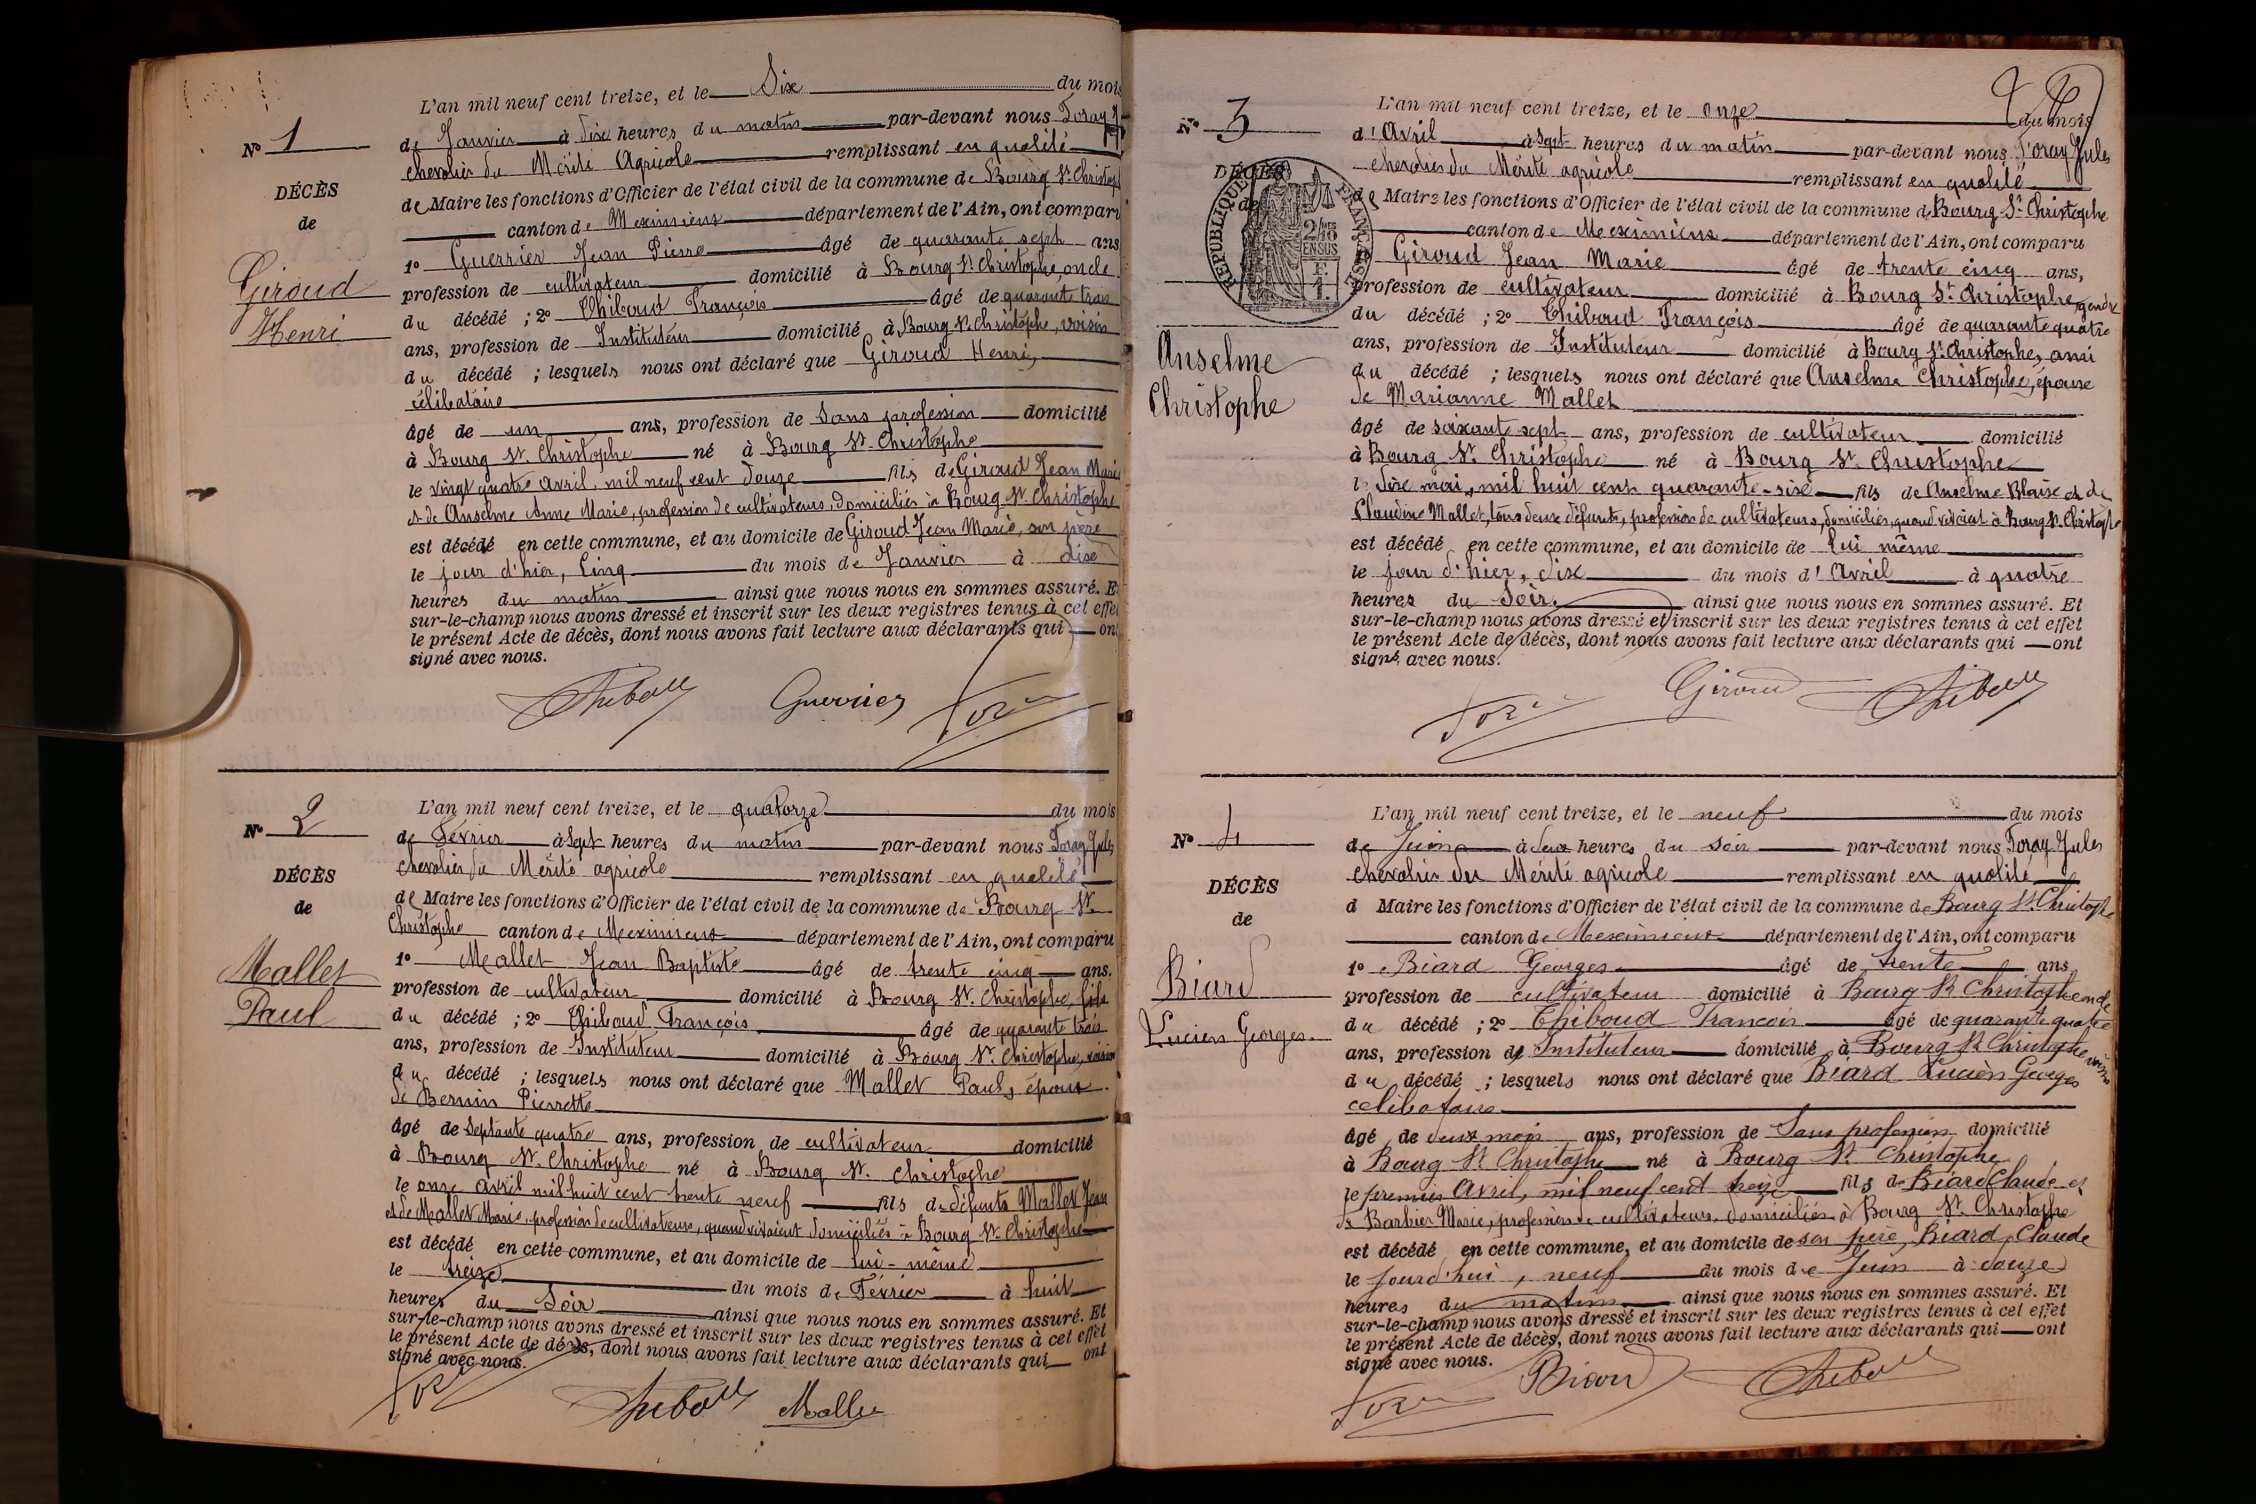 L'an mil neuf cent treize, et le Six du mois
N° 1
de Janvier à dix heures du matin par-devant nous Foray J
chevalier du Mérite Agricole remplissant en qualité
DÉCÈS
de Maire les fonctions d'Officier de l'état civil de la commune de Bourg St Christoph
de
canton de Meximieux département de l'Ain, ont comparu
1° Guerrier Jean Pierre âgé de quarante sept ans
Giroud
Henri
profession de cultivateur domicilié à Bourg St Christophe, oncle
du décédé ; 2° Thiboud François âgé de quarante trois
ans, profession de Instituteur domicilié à Bourg St Christophe, voisin
du décédé ; lesquels nous ont déclaré que Giroud Henri,
célibataire
âgé de un ans, profession de Sans profession domicilié
à Bourg St Christophe né à Bourg St Christophe
le vingt quatre avril, mil neuf cent douze fils de Giroud Jean Marie
et de Anselme Anne Marie, profession de cultivateurs, domiciliés à Bourg St Christophe
est décédé en cette commune, et au domicile de Giroud Jean Marie, son père
le jour d'hier, Cinq du mois de Janvier à dix
heures du matin ainsi que nous nous en sommes assuré. E
sur-le-champ nous avons dressé et inscrit sur les deux registres tenus à cet effe
le présent Acte de décès, dont nous avons fait lecture aux déclarants qui ont
signé avec nous.
Guerrier
L'an mil neuf cent treize, et le quatorze du mois
N° 2
de Février à Sept heures du matin par-devant nous Foray Jules
chevalier du Mérite agricole remplissant en qualité
DÉCÈS
de Maire les fonctions d'Officier de l'état civil de la commune de Bourg St
de
Christophe canton de Meximieux département de l'Ain, ont comparu
1° Mallet Jean Baptiste âgé de trente cinq ans.
Mallet
Paul
profession de cultivateur domicilié à Bourg St Christophe, fils
du décédé ; 2° Thiboud François âgé de quarante trois
ans, profession de Instituteur domicilié à Bourg St Christophe, voisin
du décédé ; lesquels nous ont déclaré que Mallet Paul, époux
de Bernin Pierrette
âgé de septante quatre ans, profession de cultivateur domicilié
à Bourg St Christophe né à Bourg St Christophe
le onze avril mil huit cent trente neuf fils de défunts Mallet Jean
et de Mallet Marie, profession de cultivateurs, quand vivaient domiciliés à Bourg St Christophe
est décédé en cette commune, et au domicile de lui-même
le treize du mois de Février à huit
heures du Soir ainsi que nous nous en sommes assuré. Et
sur-le-champ nous avons dressé et inscrit sur les deux registres tenus à cet effet
le présent Acte de décès, dont nous avons fait lecture aux déclarants qui ont
signé avec nous.
L'an mil neuf cent treize, et le onze du mois
N° 3
d'Avril à Sept heures du matin par-devant nous Foray Jules
chevalier du Mérite agricole remplissant en qualité
DÉCÈS
de Maire les fonctions d'Officier de l'état civil de la commune de Bourg St Christophe
de
RÉPUBLIQUE FRANÇAISE
canton de Meximieux département de l'Ain, ont comparu
Giroud Jean Marie âgé de trente cinq ans,
profession de cultivateur domicilié à Bourg St Christophe, gendre
du décédé ; 2° Thiboud François âgé de quarante quatre
ans, profession de Instituteur domicilié à Bourg St Christophe, ami
Anselme
Christophe
du décédé ; lesquels nous ont déclaré que Anselme Christophe, époux
de Marianne Mallet
âgé de soixante sept ans, profession de cultivateur domicilié
à Bourg St Christophe né à Bourg St Christophe
le dix mai, mil huit cent quarante-six fils de Anselme Blaise et de
Claudine Mallet, tous deux défunts, profession de cultivateurs, domiciliés, quand vivaient à Bourg St Christophe
est décédé en cette commune, et au domicile de lui même
le jour d'hier, dix du mois d'Avril à quatre
heures du Soir. ainsi que nous nous en sommes assuré. Et
sur-le-champ nous avons dressé et inscrit sur les deux registres tenus à cet effet
le présent Acte de décès, dont nous avons fait lecture aux déclarants qui ont
signé avec nous.
Giroud
L'an mil neuf cent treize, et le neuf du mois
N° 4
de Juin à deux heures du soir par-devant nous Foray Jules
chevalier du Mérite agricole remplissant en qualité
DÉCÈS
d Maire les fonctions d'Officier de l'état civil de la commune de Bourg St Christophe
de
canton de Meximieux département de l'Ain, ont comparu
1° Béard Georges âgé de trente ans
Biard
Lucien Georges
profession de cultivateur domicilié à Bourg St Christophe oncle
du décédé ; 2° Thiboud François âgé de quarante quatre
ans, profession de Instituteur domicilié à Bourg St Christophe voisin
du décédé ; lesquels nous ont déclaré que Béard Lucien Georges
célibataire
âgé de deux mois ans, profession de Sans profession domicilié
à Bourg St Christophe né à Bourg St Christophe
le premier Avril, mil neuf cent treize fils de Béard Claude et
de Barbier Marie, profession de cultivateurs, domiciliés à Bourg St Christophe
est décédé en cette commune, et au domicile de son père, Béard Claude
le jourd'hui, neuf du mois de Juin à douze
heures du matin ainsi que nous nous en sommes assuré. Et
sur-le-champ nous avons dressé et inscrit sur les deux registres tenus à cet effet
le présent Acte de décès, dont nous avons fait lecture aux déclarants qui ont
signé avec nous.